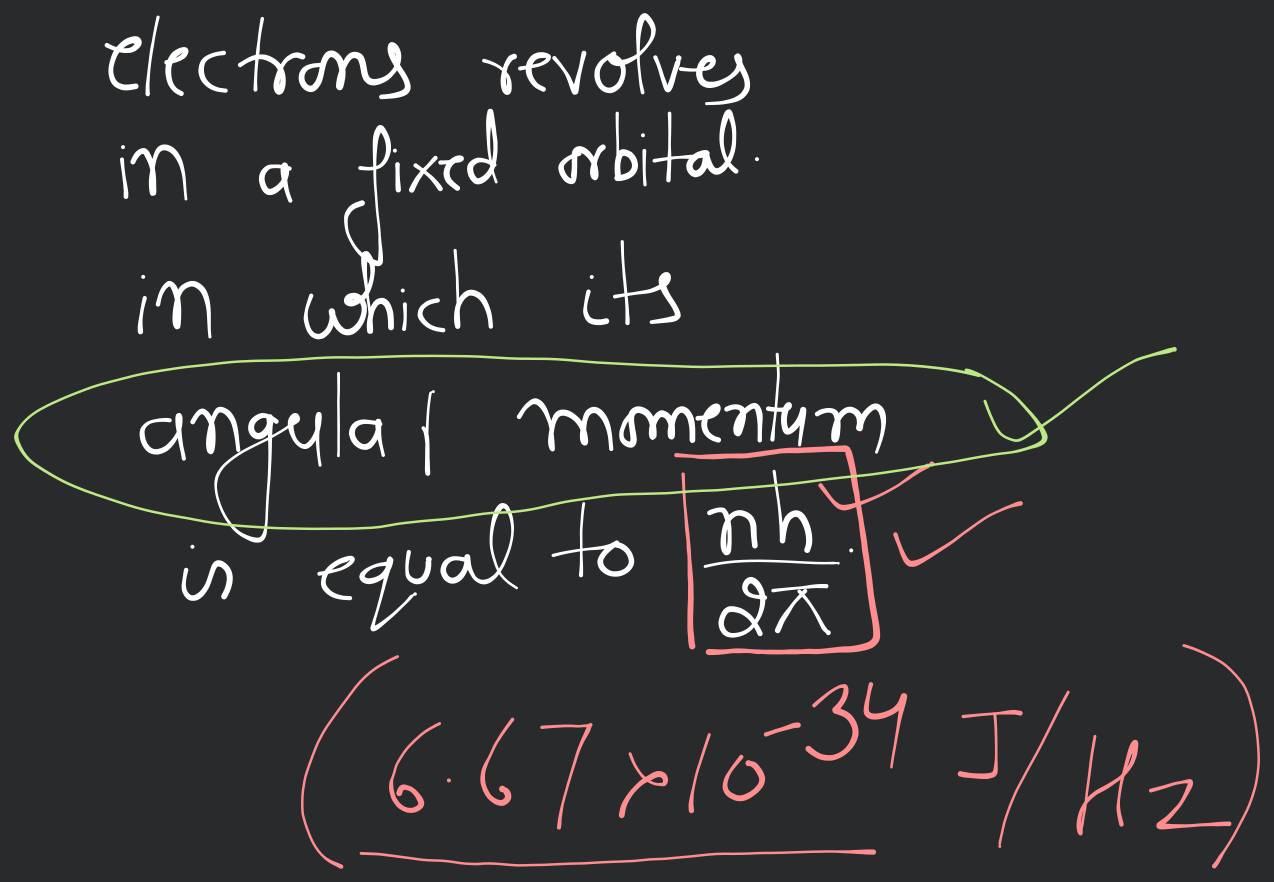 electrons revolves
in a fixed orbital.
in which its
angular momentum
is equal to nh/2π
(6.67 × 10⁻³⁴ J/Hz)